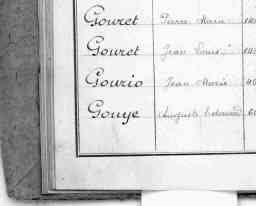 Gouret Pierre Marie
Gouret Jean Louis
Gourio Jean Marie
Gouye Auguste Edouard